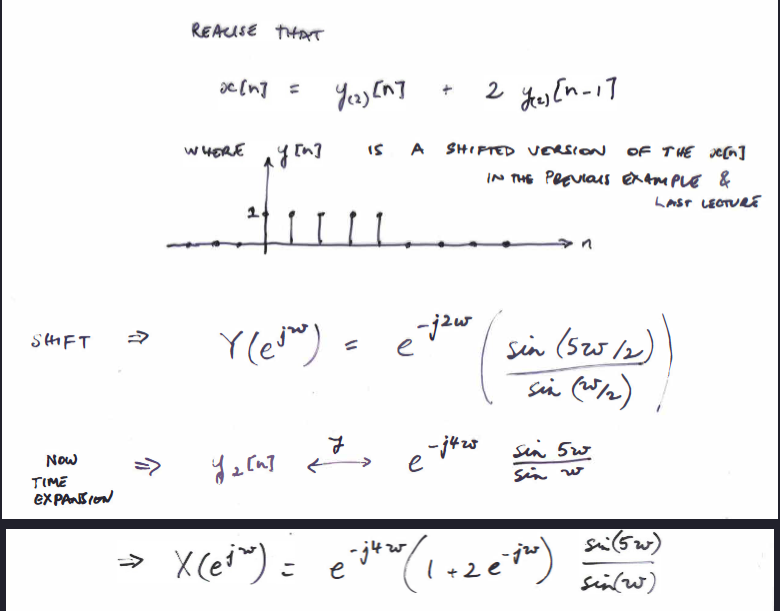 REALISE THAT
x[n] = y(2)[n] + 2 y(2)[n-1]
WHERE y[n] IS A SHIFTED VERSION OF THE x[n]
IN THE PREVIOUS EXAMPLE &
LAST LECTURE
1
n
SHIFT ⇒ Y(e^jω) = e^-j2ω ( sin (5ω/2) / sin (ω/2) )
NOW ⇒ y2[n] ⟷ℱ e^-j4ω sin 5ω / sin ω
TIME
EXPANSION
⇒ X(e^jω) = e^-j4ω (1 + 2e^-jω) sin(5ω) / sin(ω)